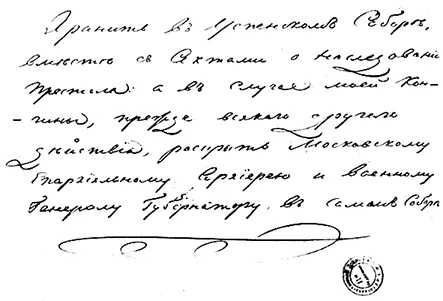 Хранить въ Успенскомъ Соборѣ,
вмѣстѣ съ Актами о наслѣдованіи
Престола: а въ случаѣ моей кон-
-чины, прежде всякаго другаго
дѣйствія, раскрыть Московскому
Епархіяльному Архіерею и Военному
Генералу Губернатору. въ самомъ Соборѣ